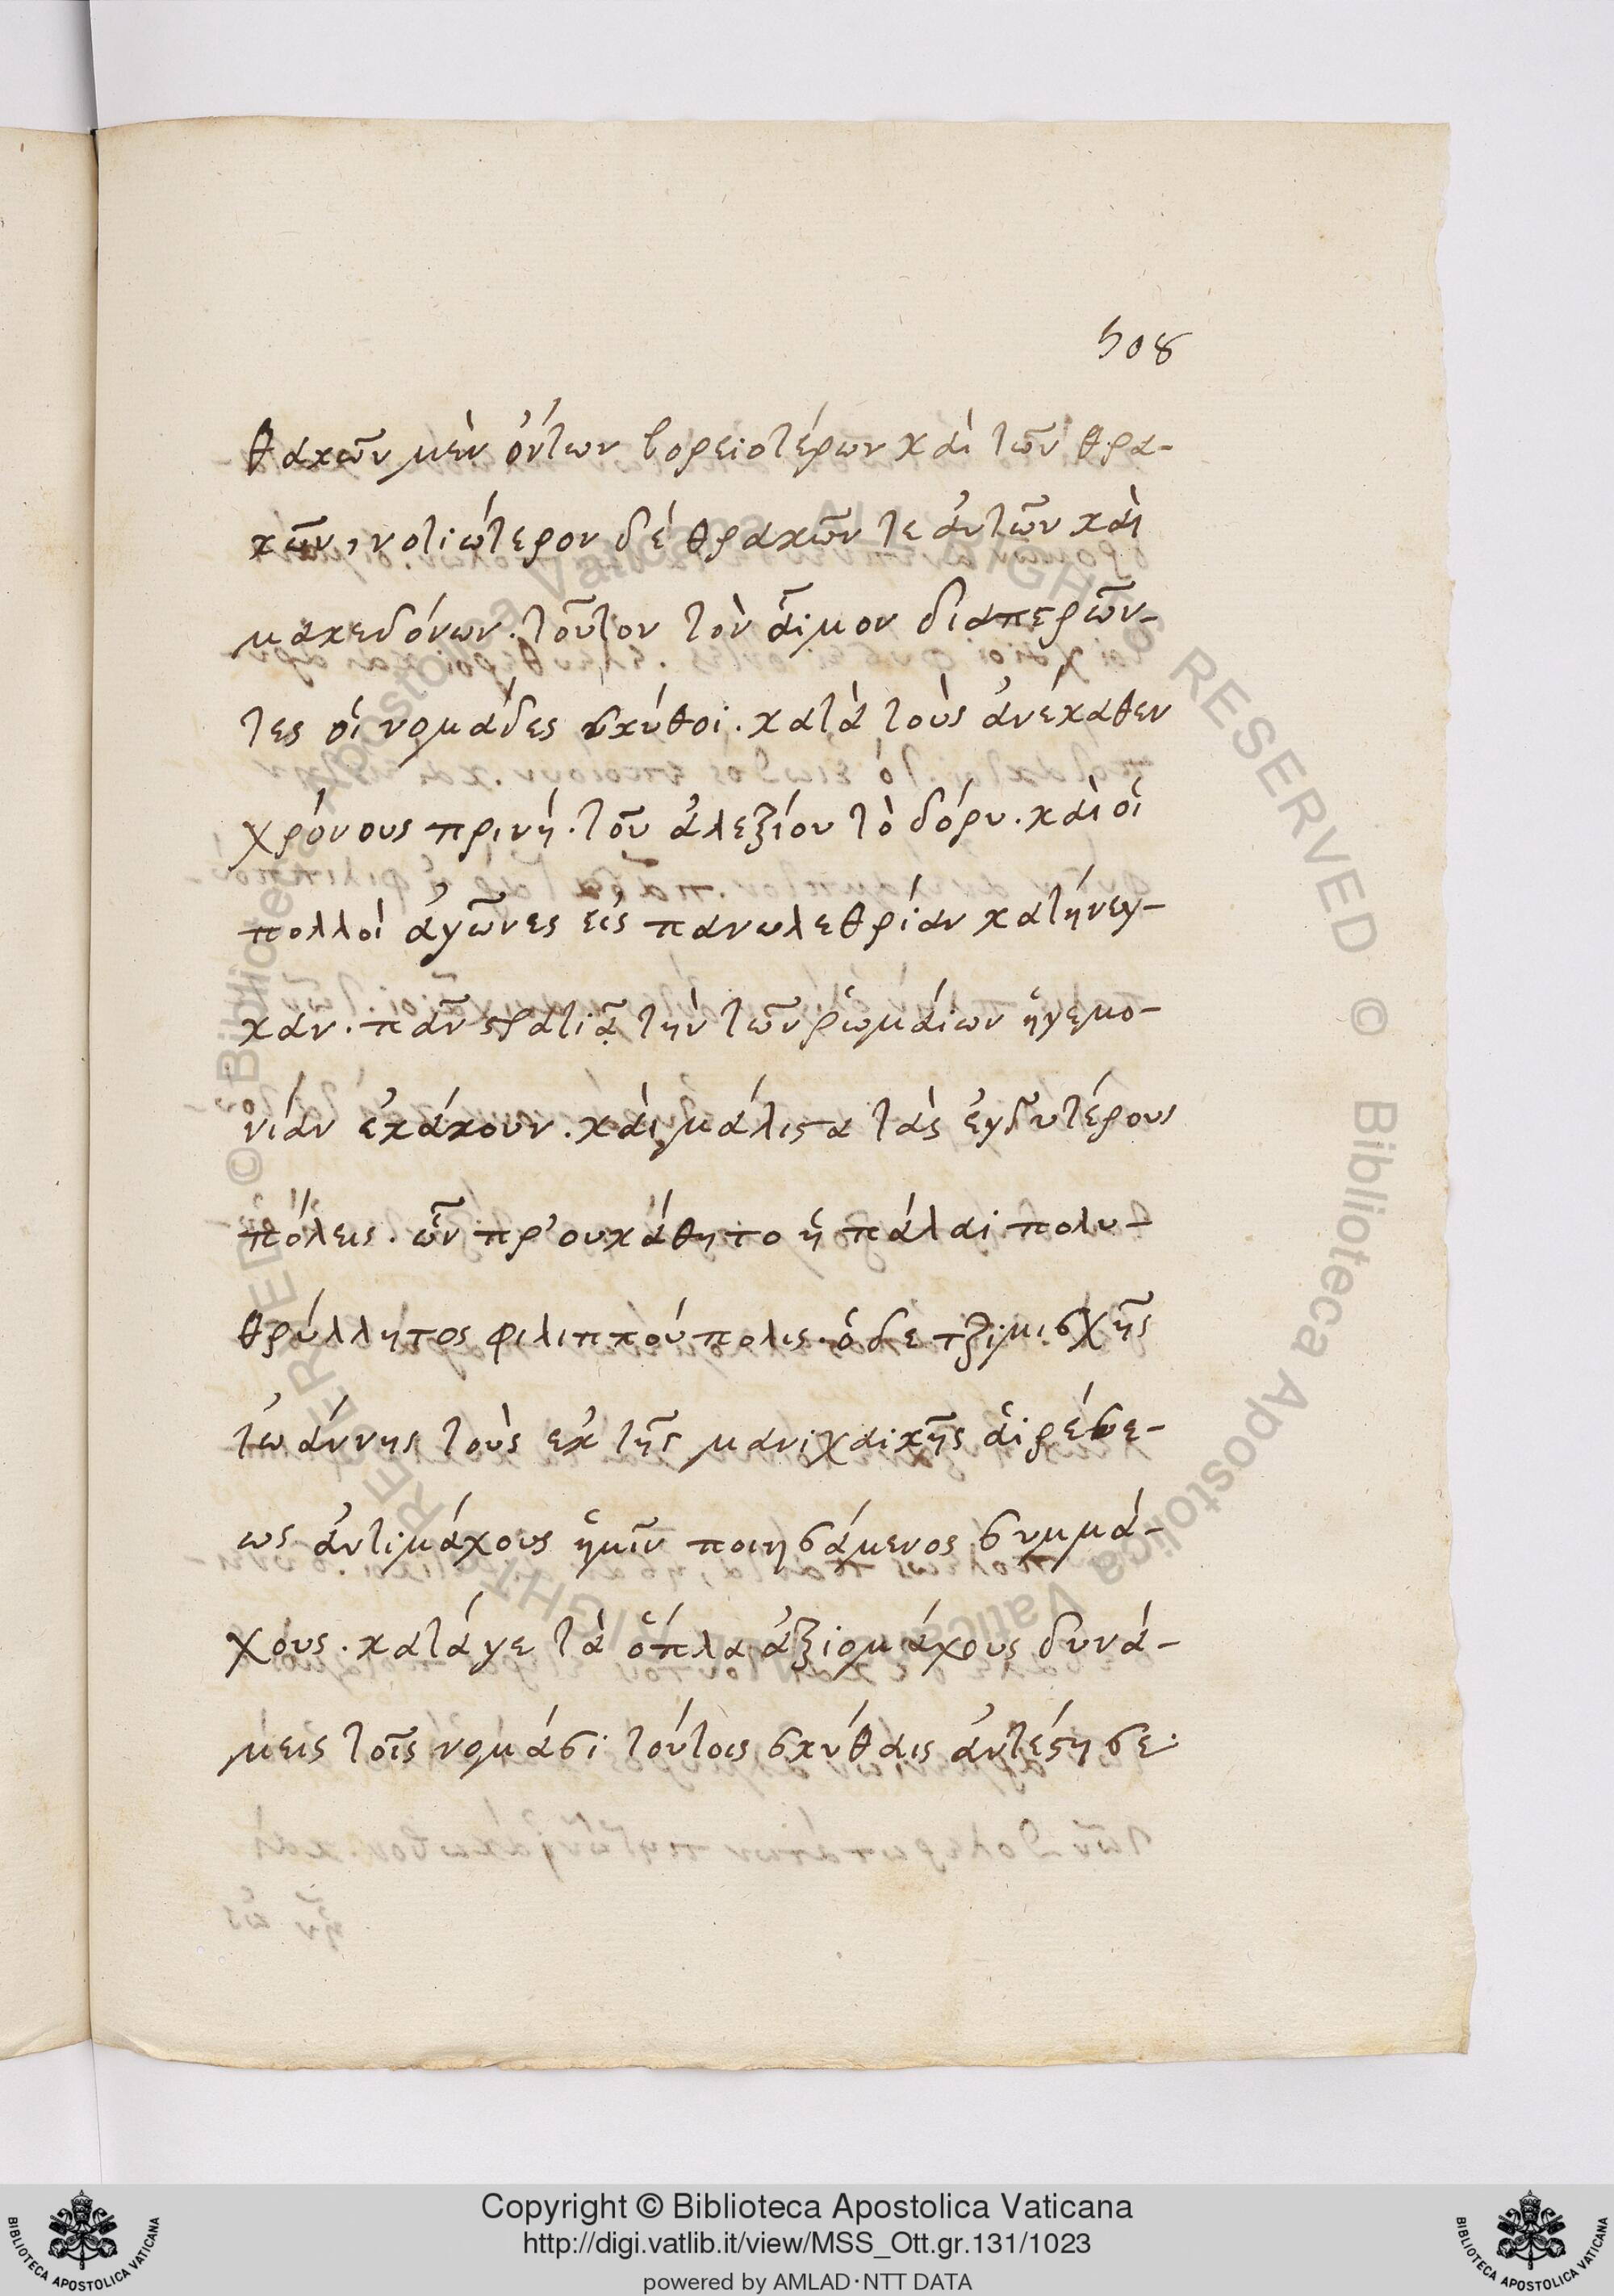 508
θακῶν μὲν ὄντων βορειοτέρων καὶ τῶν θρα-
κῶν, νοτιώτερον δέ θρακῶν τε ἀυτῶν καὶ
μακεδόνων. τοῦτον τὸν αἷμον διαπερῶν-
τες οἱ νομάδες σκύθοι. κατὰ τοὺς ἀνέκαθεν
χρόνους πρινή. τοῦ ἀλεξίου τὸ δόρυ. καὶ οἱ
πολλοὶ ἀγῶνες εἰς πανωλεθρίαν κατήνεγ-
καν. πᾶν στρατιᾷ τὴν τῶν ῥωμαίων ἡγεμο-
νίαν ἐκάκουν. καὶ μάλιστα τὰς ἐγδυτέρους
πόλεις. ὧν πρ᾽ουκάθητο ἡ πάλαι πολυ-
θρύλλητος φιλιππούπολις. ὁ δε τζιμισχῆς
ἰωάννης τοὺς εκ τῆς μανιχαικῆς ἁιρέσε-
ως ἀντιμάχους ἡμῖν ποιησάμενος συμμά-
χους. κατάγε τὰ ὅπλα ἀξιομάχους δυνά-
μεις τοῖς νομάσι τούτοις σκύθαις ἀντέστησε.
Copyright © Biblioteca Apostolica Vaticana
http://digi.vatlib.it/view/MSS_Ott.gr.131/1023
powered by AMLAD·NTT DATA
BIBLIOTECA APOSTOLICA VATICANA
BIBLIOTECA APOSTOLICA VATICANA